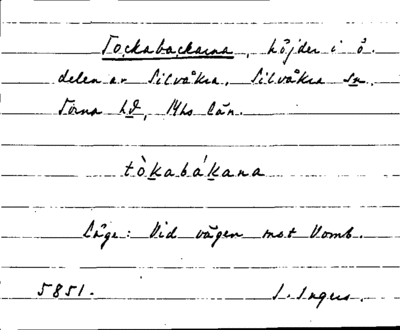 Tockabackarna, höjder i ö.
delen av Silvåkra, Silvåkra sn.
Torna hd, Mhs län.
tòkabákana
Läge: Vid vägen mot Vomb.
5851. I. Ingers.